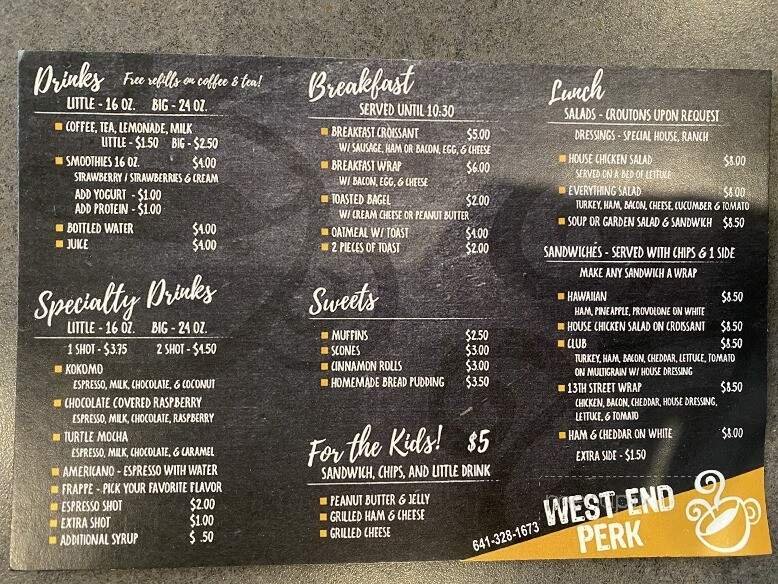 Drinks Free refills on coffee & tea!
LITTLE - 16 OZ. BIG - 24 OZ.
COFFEE, TEA, LEMONADE, MILK
LITTLE - $1.50 BIG - $2.50
SMOOTHIES 16 OZ. $4.00
STRAWBERRY / STRAWBERRIES & CREAM
ADD YOGURT - $1.00
ADD PROTEIN - $1.00
BOTTLED WATER $4.00
JUICE $4.00
Specialty Drinks
LITTLE - 16 OZ. BIG - 24 OZ.
1 SHOT - $3.75 2 SHOT - $4.50
KOKOMO
ESPRESSO, MILK, CHOCOLATE, & COCONUT
CHOCOLATE COVERED RASPBERRY
ESPRESSO, MILK, CHOCOLATE, RASPBERRY
TURTLE MOCHA
ESPRESSO, MILK, CHOCOLATE, & CARAMEL
AMERICANO - ESPRESSO WITH WATER
FRAPPE - PICK YOUR FAVORITE FLAVOR
ESPRESSO SHOT $2.00
EXTRA SHOT $1.00
ADDITIONAL SYRUP $ .50
Breakfast
SERVED UNTIL 10:30
BREAKFAST CROISSANT $5.00
W/ SAUSAGE, HAM OR BACON, EGG, & CHEESE
BREAKFAST WRAP $6.00
W/ BACON, EGG, & CHEESE
TOASTED BAGEL $2.00
W/ CREAM CHEESE OR PEANUT BUTTER
OATMEAL W/ TOAST $4.00
2 PIECES OF TOAST $2.00
Sweets
MUFFINS $2.50
SCONES $3.00
CINNAMON ROLLS $3.00
HOMEMADE BREAD PUDDING $3.50
For the Kids! $5
SANDWICH, CHIPS, AND LITTLE DRINK
PEANUT BUTTER & JELLY
GRILLED HAM & CHEESE
GRILLED CHEESE
Lunch
SALADS - CROUTONS UPON REQUEST
DRESSINGS - SPECIAL HOUSE, RANCH
HOUSE CHICKEN SALAD $8.00
SERVED ON A BED OF LETTUCE
EVERYTHING SALAD $8.00
TURKEY, HAM, BACON, CHEESE, CUCUMBER & TOMATO
SOUP OR GARDEN SALAD & SANDWICH $8.50
SANDWICHES - SERVED WITH CHIPS & 1 SIDE
MAKE ANY SANDWICH A WRAP
HAWAIIAN $8.50
HAM, PINEAPPLE, PROVOLONE ON WHITE
HOUSE CHICKEN SALAD ON CROISSANT $8.50
CLUB $8.50
TURKEY, HAM, BACON, CHEDDAR, LETTUCE, TOMATO
ON MULTIGRAIN W/ HOUSE DRESSING
13TH STREET WRAP $8.50
CHICKEN, BACON, CHEDDAR, HOUSE DRESSING,
LETTUCE, & TOMATO
HAM & CHEDDAR ON WHITE $8.00
EXTRA SIDE - $1.50
641-328-1673
WEST END
PERK